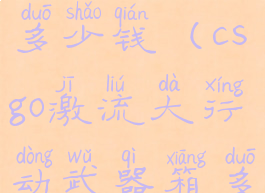 duō shǎo qián
多少钱（cs
jī liú dà xíng
go激流大行
dòng wǔ qì xiāng duō
动武器箱多